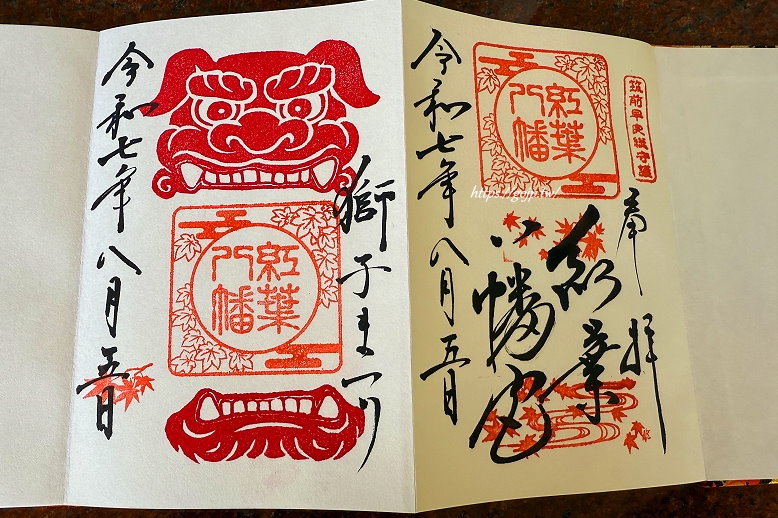 筑前早良総守護
奉拝
紅葉
八幡
紅葉
八幡宮
令和七年八月五日
獅子まつり
紅葉
八幡
令和七年八月五日